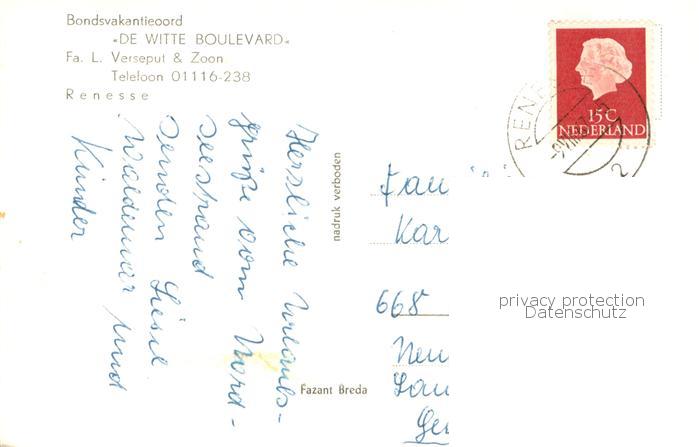 Bondsvakantieoord
«DE WITTE BOULEVARD«
Fa. L. Verseput & Zoon
Telefoon 01116-238
Renesse
Herzliche Urlaubs-
grüße vom Nord-
seestrand
senden Liesel
Waldemar und
Kinder
nadruk verboden
Fazant Breda
15C
NEDERLAND
Fam
Kar
668
Neu
Lan
privacy protection
Datenschutz